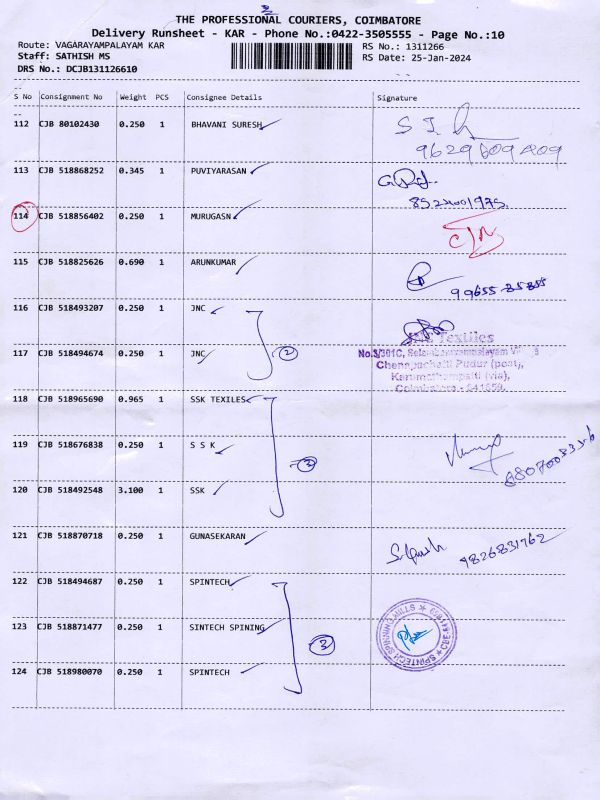 THE PROFESSIONAL COURIERS, COIMBATORE
Delivery Runsheet - KAR - Phone No.:0422-3505555 - Page No.:10
Route: VAGARAYAMPALAYAM KAR RS No.: 1311266
Staff: SATHISH MS RS Date: 25-Jan-2024
DRS No.: DCJB131126610
S No Consignment No Weight PCS Consignee Details Signature
112 CJB 80102430 0.250 1 BHAVANI SURESH
9629609209
113 CJB 518868252 0.345 1 PUVIYARASAN
114 CJB 518856402 0.250 1 MURUGASN
115 CJB 518825626 0.690 1 ARUNKUMAR
99655 85855
116 CJB 518493207 0.250 1 JNC
Textiles
117 CJB 518494674 0.250 1 JNC 2
No.3/301C,
Chenapachetti Pudur (post),
Karumathampatti (via),
Coimbatore - 641659.
118 CJB 518965690 0.965 1 SSK TEXILES
119 CJB 518676838 0.250 1 S S K
3
120 CJB 518492548 3.100 1 SSK
121 CJB 518870718 0.250 1 GUNASEKARAN
9826831762
122 CJB 518494687 0.250 1 SPINTECH
123 CJB 518871477 0.250 1 SINTECH SPINING 3
SPINTECH SPINNING MILLS
124 CJB 518980070 0.250 1 SPINTECH